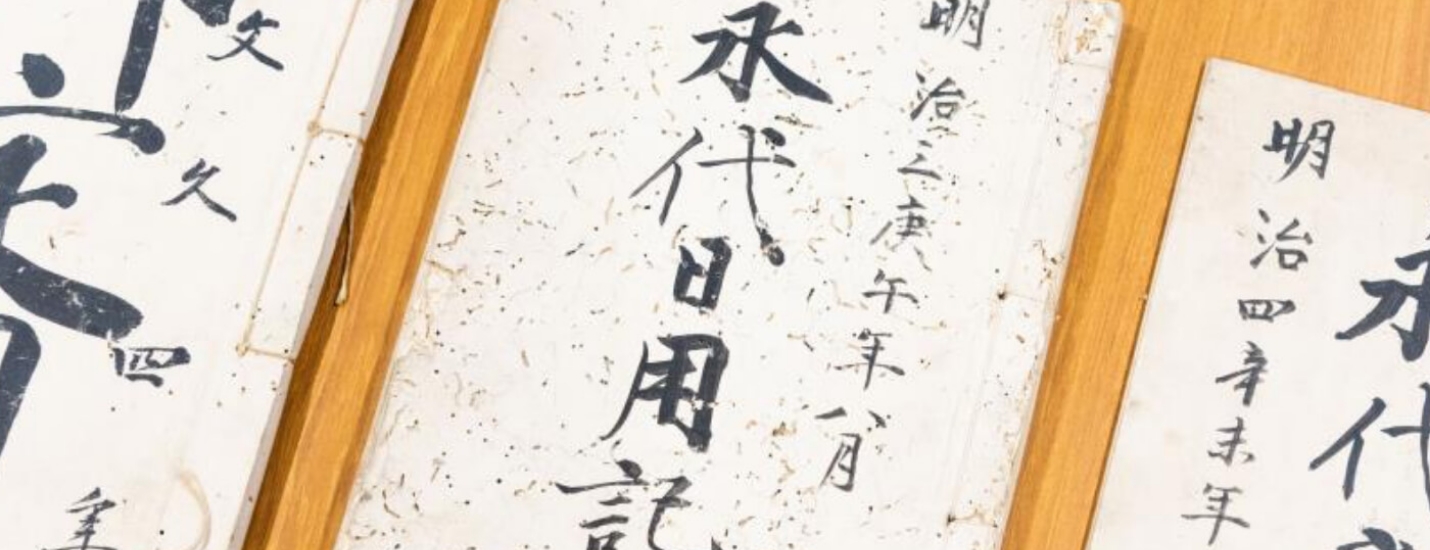 明治三庚午年八月
永代日用記
明治四辛未年
永代
文久四